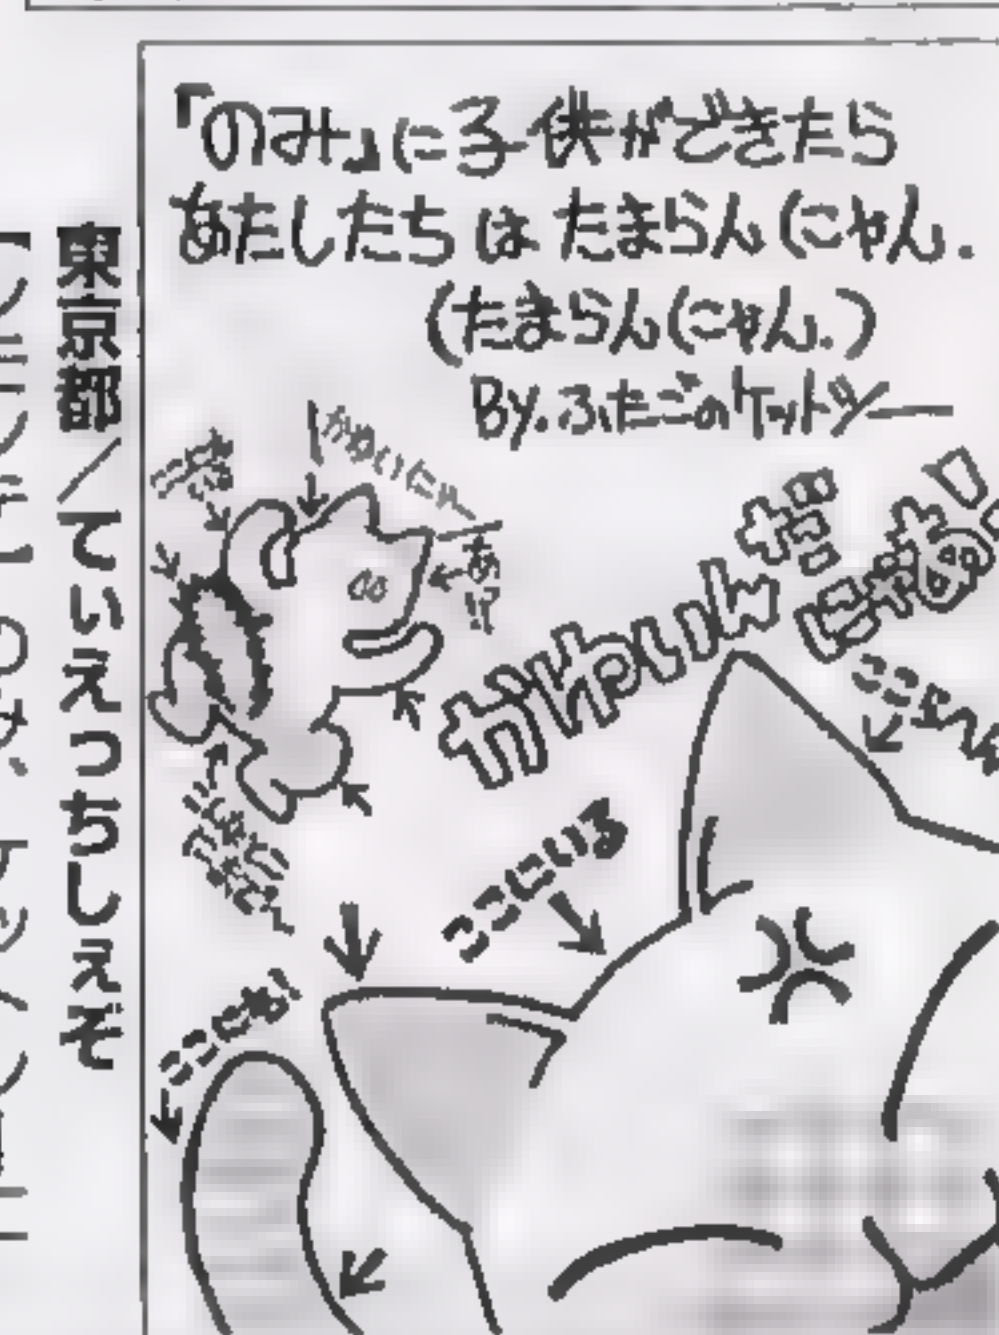 『のみ』に子供ができたら
あたしたちはたまらんにゃん.
(たまらんにゃん.)
By.ふたごのケットシー
かわいにゃー
かゆいんだ
にゃあ!
ここにいる
ここにも!
東京都/てぃえっちしぇぞ